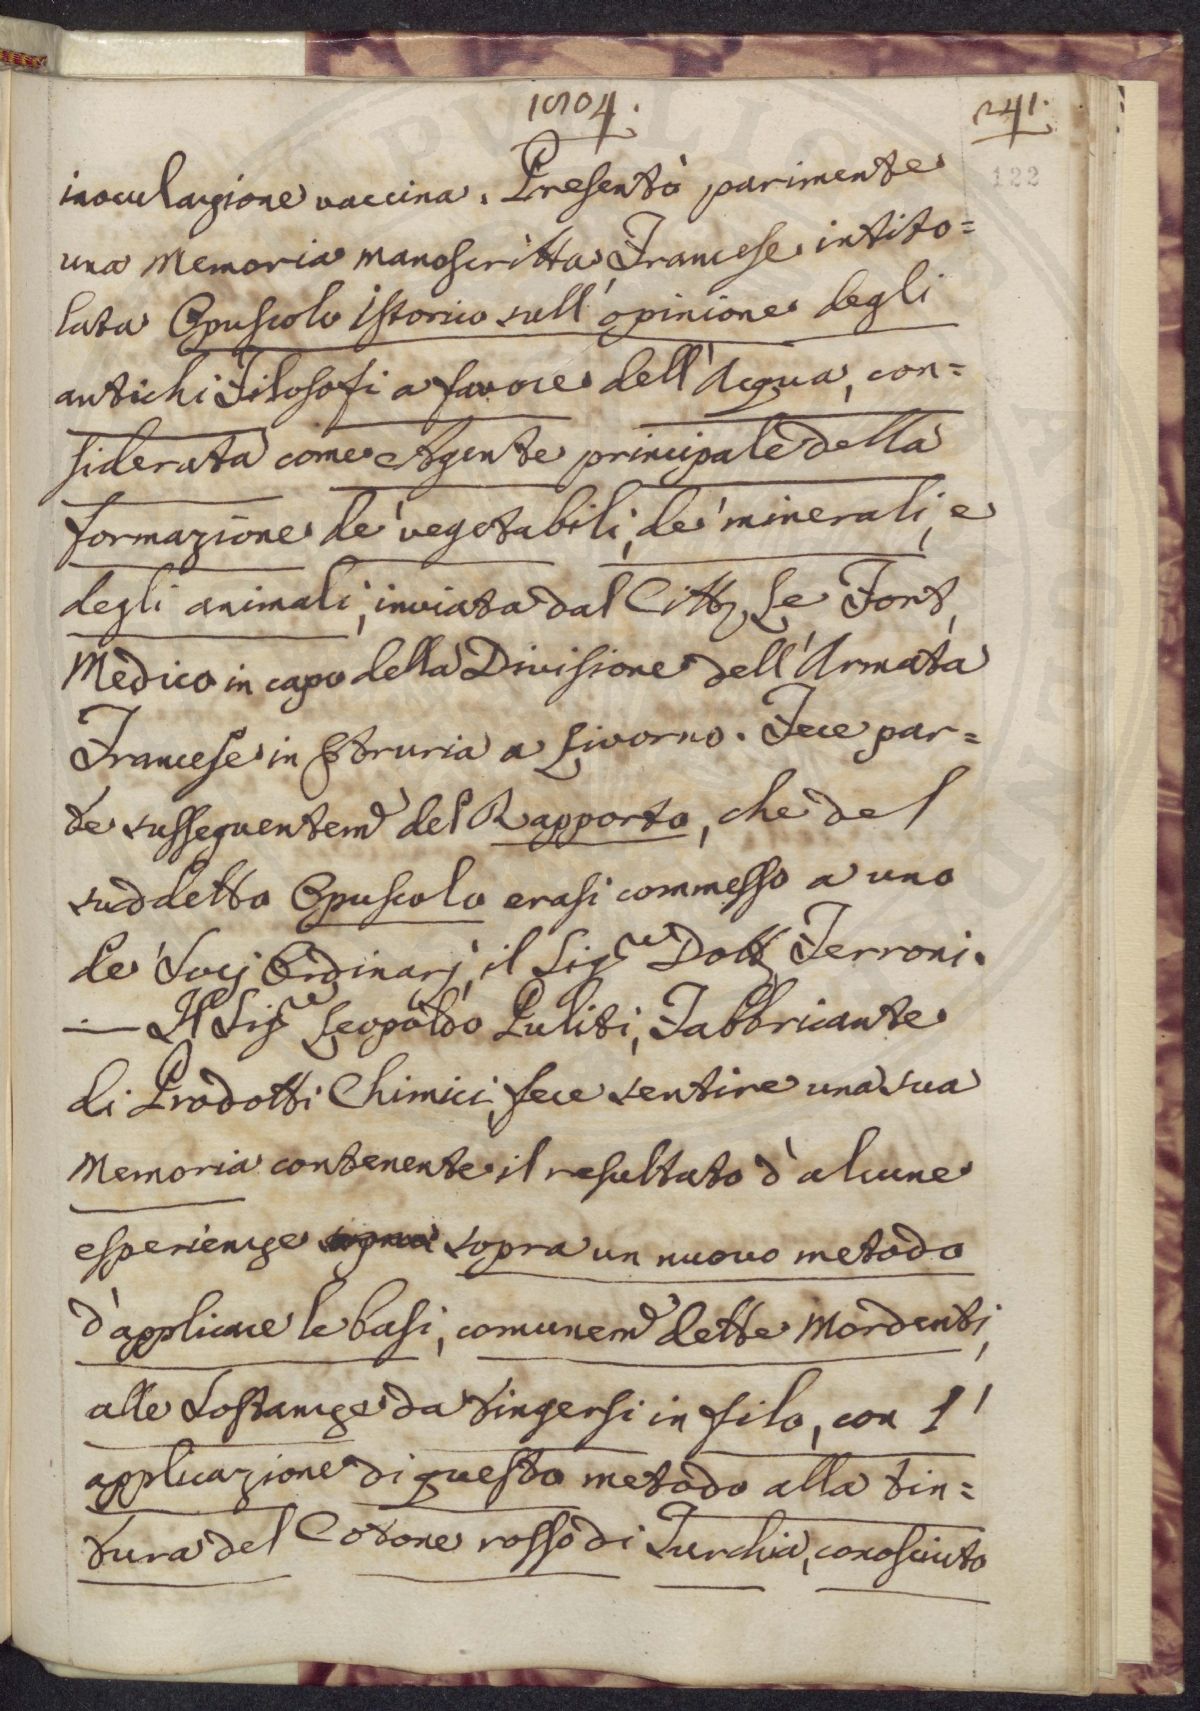 1804.
241.
122
inoculazione vaccina. Presentò parimente
una Memoria manoscritta Francese intito=
lata Opuscolo Istorico sull' opinione degli
antichi Filosofi a favore dell' Acqua, con=
siderata come Agente principale della
formazione de' vegetabili, de' minerali, e
degli animali, inviata dal Citt. Le Fort,
Medico in capo della Divisione dell' Armata
Francese in Etruria a Livorno. Fece par=
te susseguentem.e del Rapporto, che del
suddetto Opuscolo erasi commesso a uno
de' Socj Ordinarj, il Sig.re Dott. Ferroni.
— Il Sig.re Leopoldo Puliti, Fabbricante
di Prodotti Chimici, fece sentire una sua
Memoria contenente il resultato d' alcune
esperienze sopra un nuovo metodo
d' applicare le basi, comunem.e dette Mordenti,
alle Sostanze da tingersi in filo, con l'
applicazione di questo metodo alla tin=
tura del Cotone rosso di Turchia, conosciuto